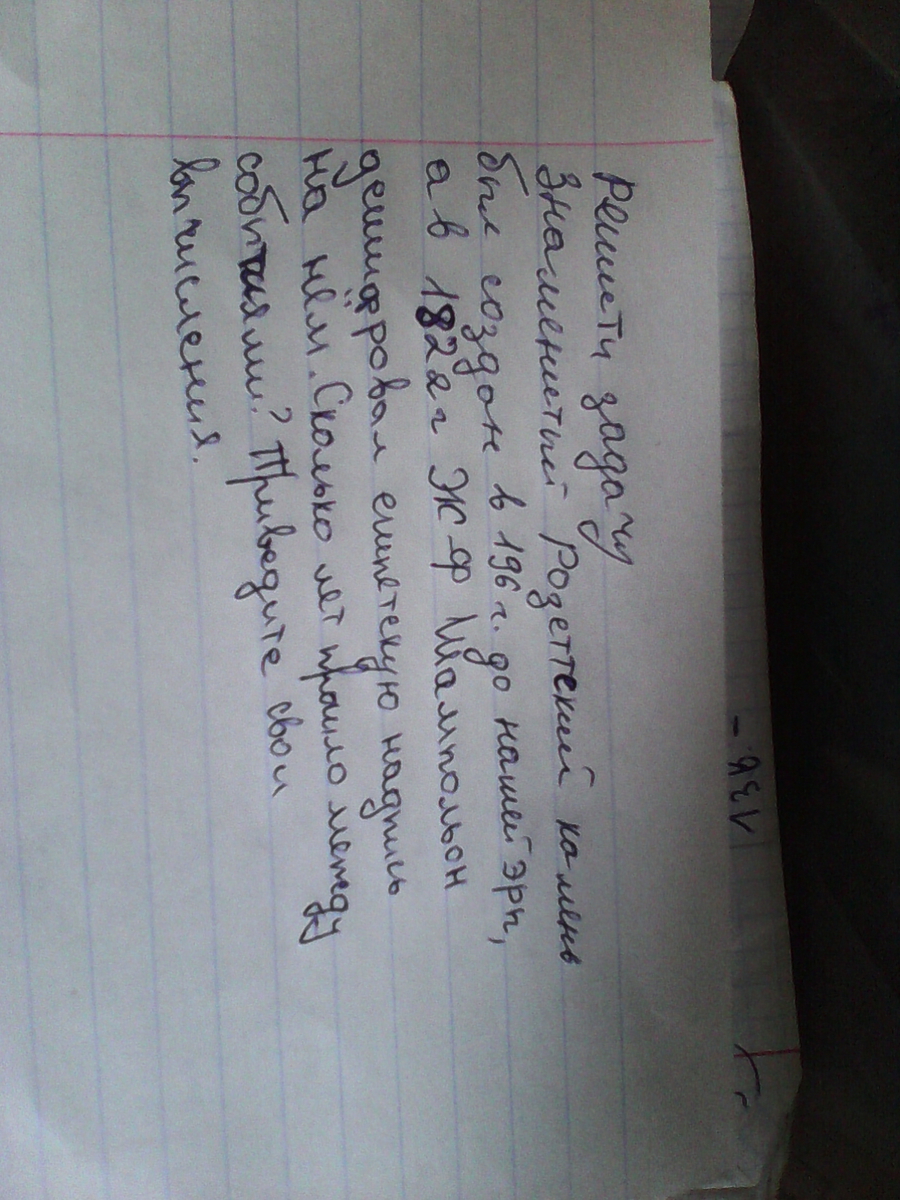 Решити задачу
Знаменитый Розеттский камень
был создан в 196 г. до нашей эры,
а в 1822 г Ж Ф Шампольон
дешифровал египетскую надпись
на нём. Сколько лет прошло между
событиями? Приведите свои
вычисления.